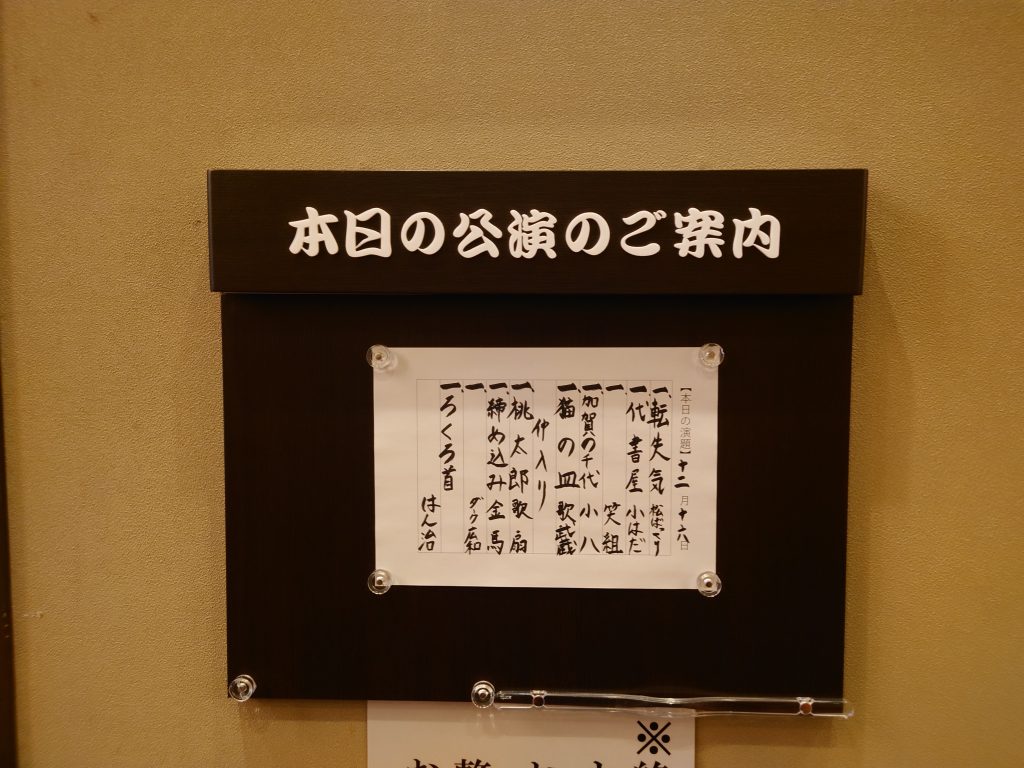 本日の公演のご案内
【本日の演題】十二月十六日
一、転失気 松ぼっくり
一、代書屋 小はだ
一、 笑組
一、加賀の千代 小八
一、猫の皿 歌蔵
仲入り
一、桃太郎 歌扇
一、締め込み 金馬
一、 ダーク広和
一、ろくろ首 はん治
※